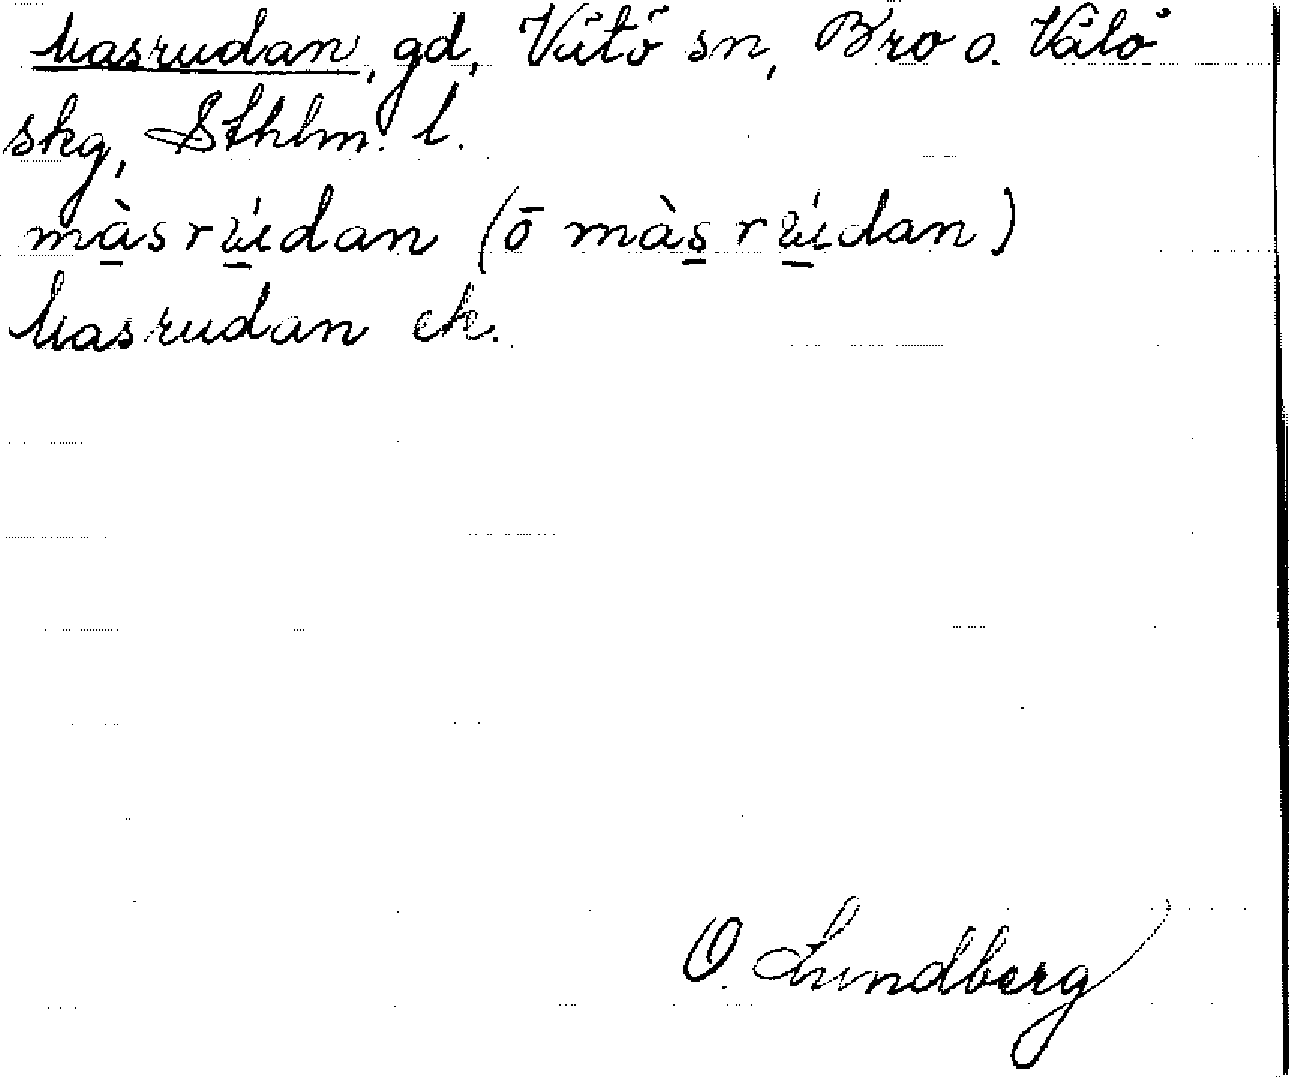 Masrudan, gd, Vätö sn, Bro o. Vätö
skg, Sthlm. l.
màsrúdan (ō màs rúdan)
Masrudan ek.
O. Lundberg